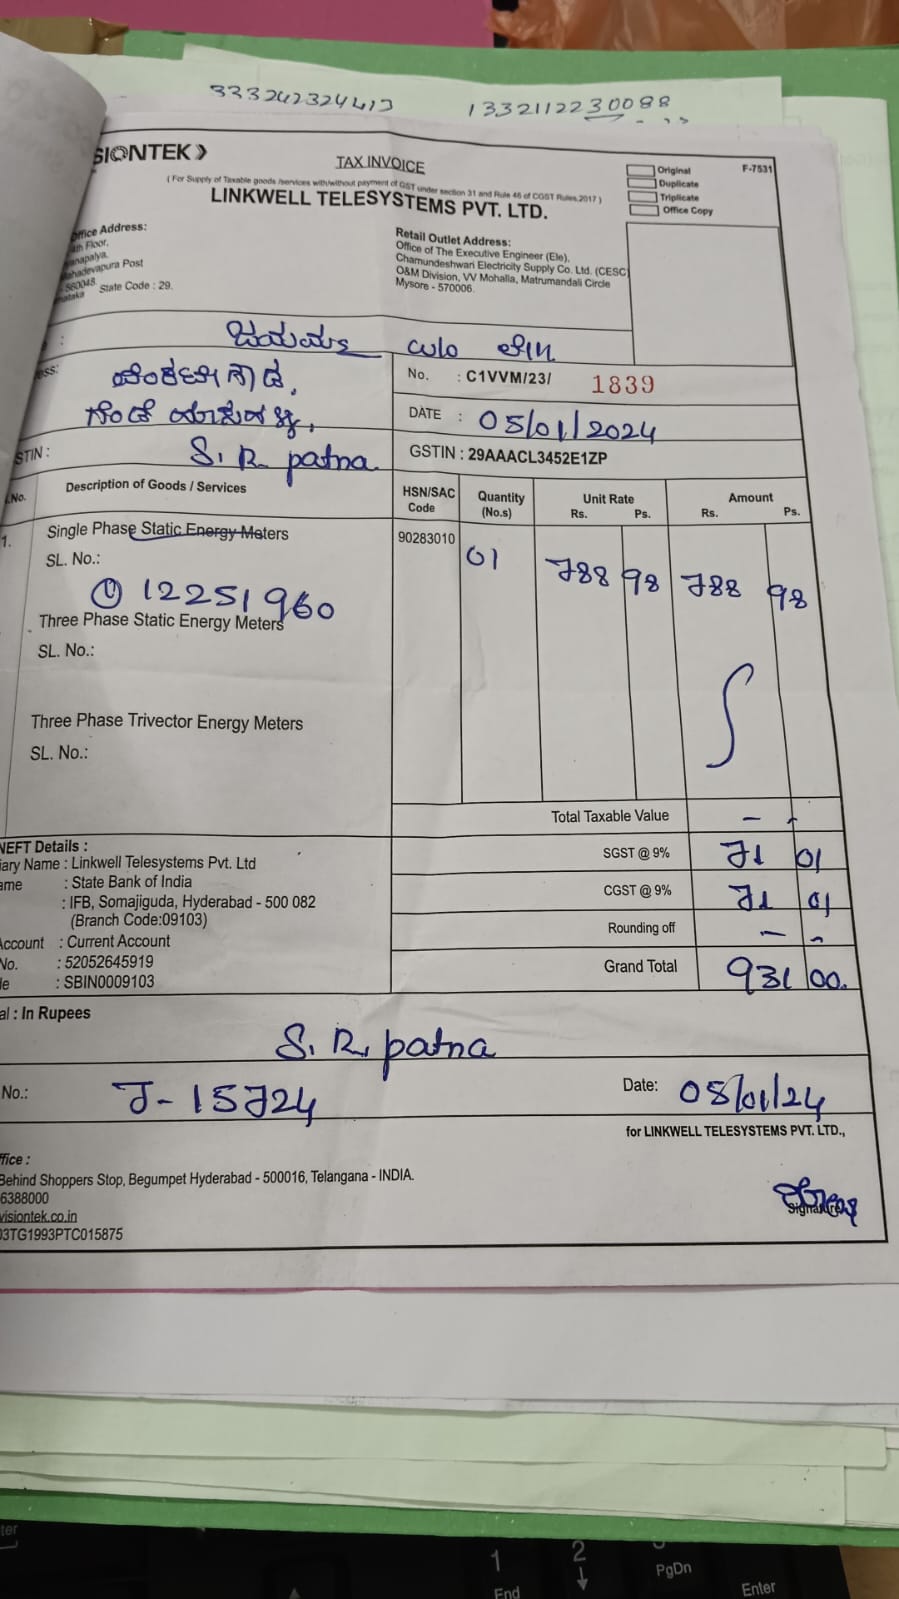 333242324413
1332112230088
SIONTEK
TAX INVOICE
Original
F-7531
Duplicate
Triplicate
Office Copy
( For Supply of Taxable goods /services with/without payment of GST under section 31 and Rule 46 of CGST Rules,2017 )
LINKWELL TELESYSTEMS PVT. LTD.
ffice Address:
th Floor,
anapalya,
ahadevapura Post
- 560048.
nataka State Code : 29.
Retail Outlet Address:
Office of The Executive Engineer (Ele),
Chamundeshwari Electricity Supply Co. Ltd. (CESC
O&M Division, VV Mohalla, Matrumandali Circle
Mysore - 570006.
ess:
No. : C1VVM/23/ 1839
DATE : 05/01/2024
S. R. patna.
STIN :
GSTIN : 29AAACL3452E1ZP
.No.
Description of Goods / Services
HSN/SAC Code
Quantity (No.s)
Unit Rate Rs. Ps.
Amount Rs. Ps.
1. Single Phase Static Energy Meters 90283010 01 788 98 788 98
SL. No.:
① 12251960
Three Phase Static Energy Meters
SL. No.:
Three Phase Trivector Energy Meters
SL. No.:
Total Taxable Value - -
NEFT Details :
iary Name : Linkwell Telesystems Pvt. Ltd
SGST @ 9% 71 01
ame : State Bank of India
: IFB, Somajiguda, Hyderabad - 500 082
CGST @ 9% 71 01
(Branch Code:09103)
Rounding off - -
Account : Current Account
No. : 52052645919
Grand Total 931 00.
de : SBIN0009103
al : In Rupees
S. R. patna
No.: J-15724
Date: 05/01/24
for LINKWELL TELESYSTEMS PVT. LTD.,
ffice :
Behind Shoppers Stop, Begumpet Hyderabad - 500016, Telangana - INDIA.
6388000
visiontek.co.in
03TG1993PTC015875
Signature
1
End
2
PgDn
Enter